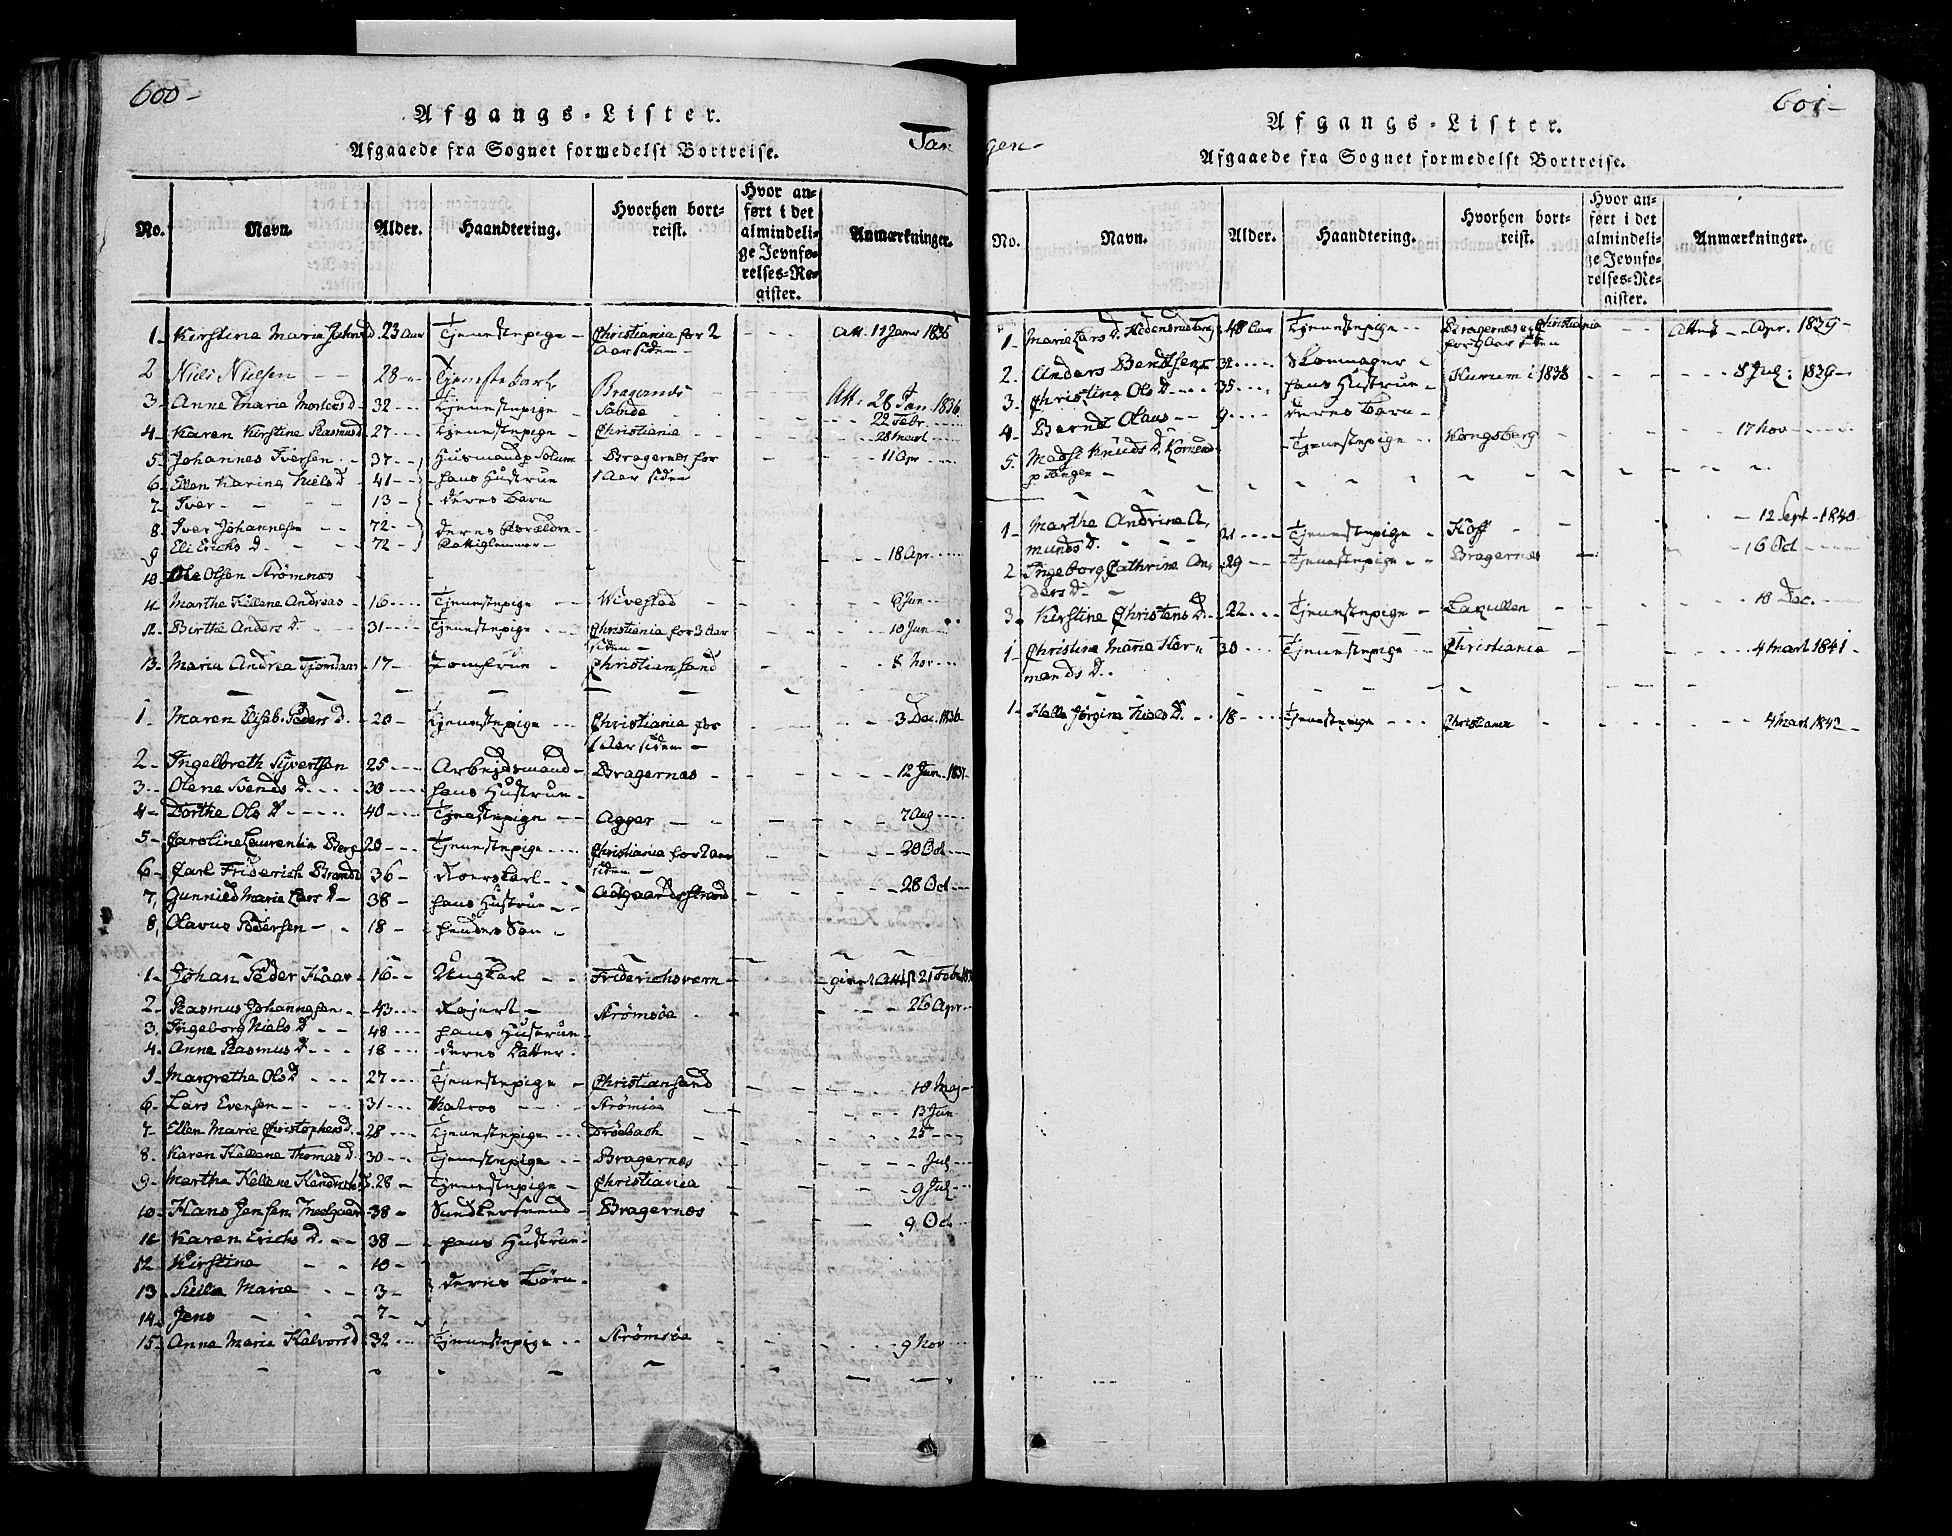 600-
Afgangs-Lister.
Afgaaede fra Sognet formedelst Bortreise.
Tan
No. Navn. Alder. Haandtering. Hvorhen bort-
reist. Hvor an-
ført i det
almindeli-
ge Jevnfø-
relses-Re-
gister. Anmærkninger.
1- Kirstine Maria 23 Aar Tjenestepige - Christiania for 2
Aar siden - Att. 11 Janr 1836
2 Niels Nielsen - - 28 - Tjenestekarl Bragernæs
3- Anne Maria Mortens D. 32 - - - Tjenestepige - Sande - Att. 28 Jan 1836
4- Karen Kirstine Rasmus D. 27 - - - Tjenestepige - Christiania - - 22 Febr.
28 Mart
5- Johannes Iversen - 37 - - Huusmand p Solum - Bragernæs for 11 Apr
6- Ellen Karine Niels D. 41 - - hans Hustrue 1 Aar siden
7- Iver - - - 13 - deres Barn
8 Iver Johannesen - - 72 - - deres Forældre -
9 Eli Erichs D. - - - 72 - -
18 Apr
10 Ole Olsen Strømnæs -
11 Marthe Andreas - 16 - - - Tjenestepige - - - 9 Jun
12- Birthe Anders D. 31 - - - Tjenestepige - - Christiania for 3 Aar
siden - 10 Jun
13- Maria Andrea - 17 - Jomfrue - Christiansand - 8 Nov
1- Maren Elisab. Peders D. - 20 - Tjenestepige - - - Christiania for
1 Aar siden - 3 Dec. 1836
2- Ingelbreth Syvertsen 25 - - - Arbejdsmand - Bragernæs - 12 Jun. 1837
3- Olene Svends D. - - - 30 - - - hans Hustrue -
4- Dorthe Ols D. - - - - 40 - - - Tjenestepige - - Agger - - 7 Aug
5- Caroline Laurentia Berg 20 - - - Tjenestepige - - - - Christiania for 2 Aar
siden - 20 Oct
6- Carl Friderich Brandt 36 - - - 28 Oct
7, Gunnild Marie Lars D - 38 - hans Hustrue - - Aasgaardsstrand
8, Olavus Pedersen - - 18 - hendes Søn -
1- Johan Peder Haar - 16 - - Ungkarl - - Friderichsvern - givet Att. 21 Febr.
2- Rasmus Johannesen - 43 - - - - Strømsøe - 26 Apr -
3, Ingeborg Niels D - - 48 - - - hans Hustrue -
4- Anne Rasmus D. - - - 18 - - - deres Datter -
5 Margrethe Ols D. - - - 27 - - - Tjenestepige - Christiansand - 18 Maj -
6- Lars Evensen - - - 31 - - - Matros - - - Strømsøe - 13 Jun
7- Ellen Marie Christophers D. 28 - - - Tjenestepige - - - Drøebach - 25 - - -
8- Karen Thomas D. 30 - - - Tjenestepige - - Bragernæs - Jul
9- Marthe 28 - Tjenestepige - Christiania - 9 Jul
10- Hans Jensen 38 - - Bragernæs - 9 Oct
11 Karen Erichs D. - - 38 - - hans Hustrue -
12- Kirstine - - 10 -
13- Maria - - 3 - deres Børn -
14- Jens - - 7 -
15- Anne Maria Halvors D 32 - - - Tjenestepige - - - Strømsøe - 9 Nov
601-
Afgangs-Lister.
gen-
Afgaaede fra Sognet formedelst Bortreise.
No. Navn. Alder. Haandtering. Hvorhen bort-
reist. Hvor an-
ført i det
almindeli-
ge Jevnfø-
relses-Re-
gister. Anmærkninger.
1- Marie Lars D. 48 Aar Tjenestepige - - Bragernæs Christiania
for 9 Aar siden - Apr. 1839 -
2. Anders Berndtsen 32 - - - Skomager - Hurum i 1838 - 8 Jul: 1839 -
3. Christine Ols D. - - 35 - - - hans Hustrue -
4- Bernt Olaus - - 9 - - - deres Barn -
5. Knuds D.
p Tangen - - Tjenestepige - - Kongsberg - 17 Nov
1- Marthe Andrine A-
munds D. - - - 21 - - - Tjenestepige - Hoff - 12 Sept - 1840
2- Ingeborg Cathrine An-
ders D. - 29 - - Tjenestepige - - Bragernæs - 16 Oct
3. Kirstine Christens D. - 22 - - - Tjenestepige - - 18 Dec.
1- Christine Maria Her-
mands D. - 30 - - - Tjenestepige - - Christiania - 4 Mart 1841 -
1- Helle Jørgine Niels D. - 18 - - - Tjenestepige - - - Christiania - 4 Mart 1842 -